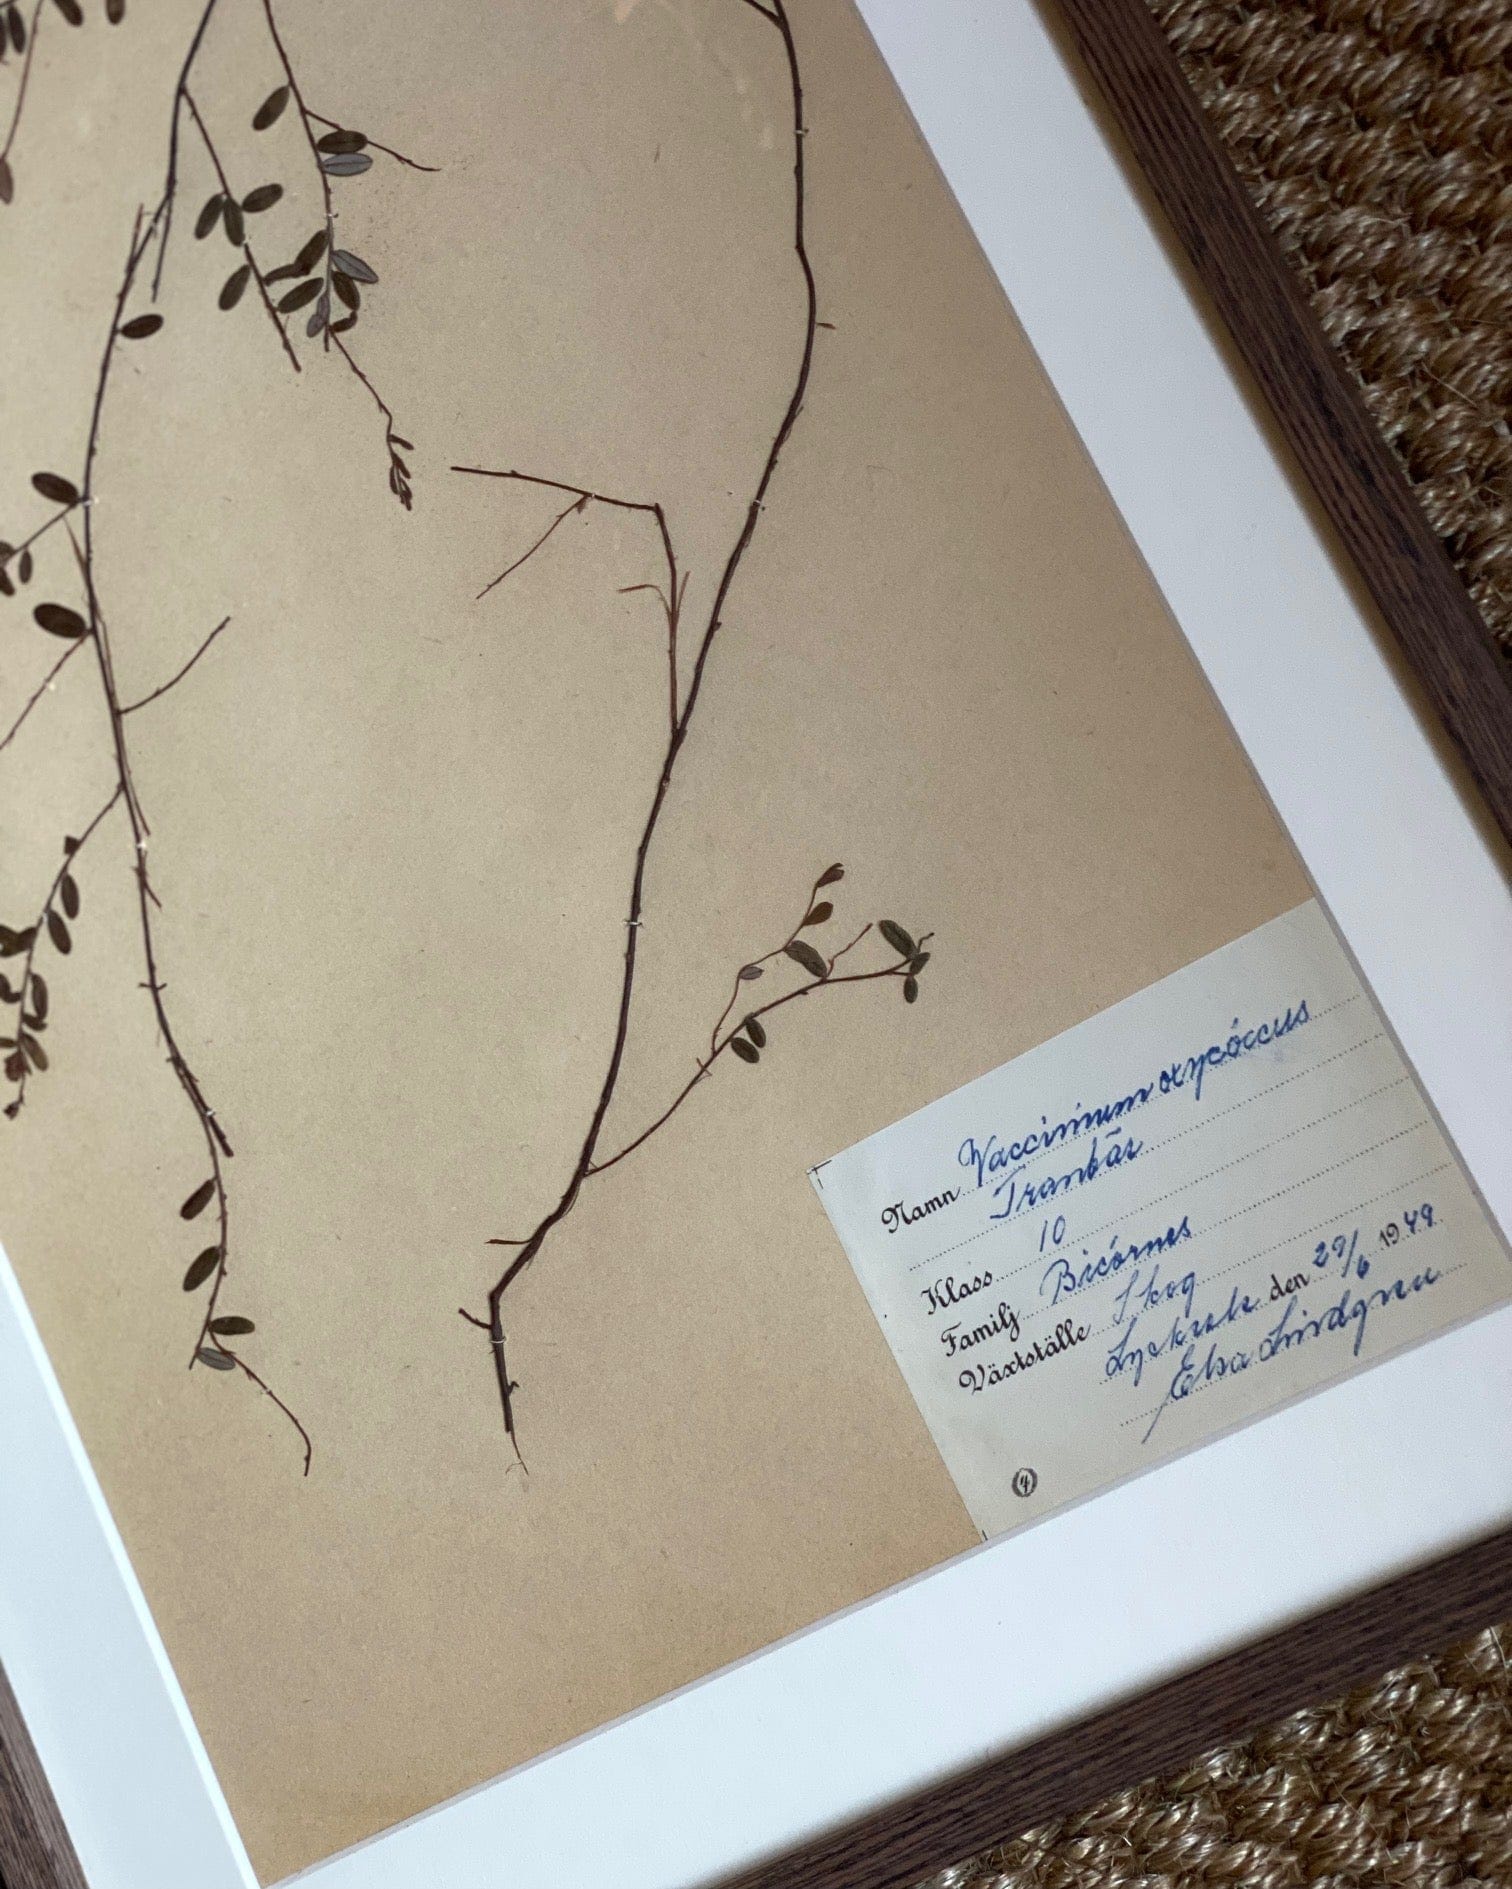 Namn Vaccinium oxycóccus
Tranbär
Klass 10
Familj Bicórnes
Växtställe Skog
Lycksele den 29/6 1949
Elsa Lindgren